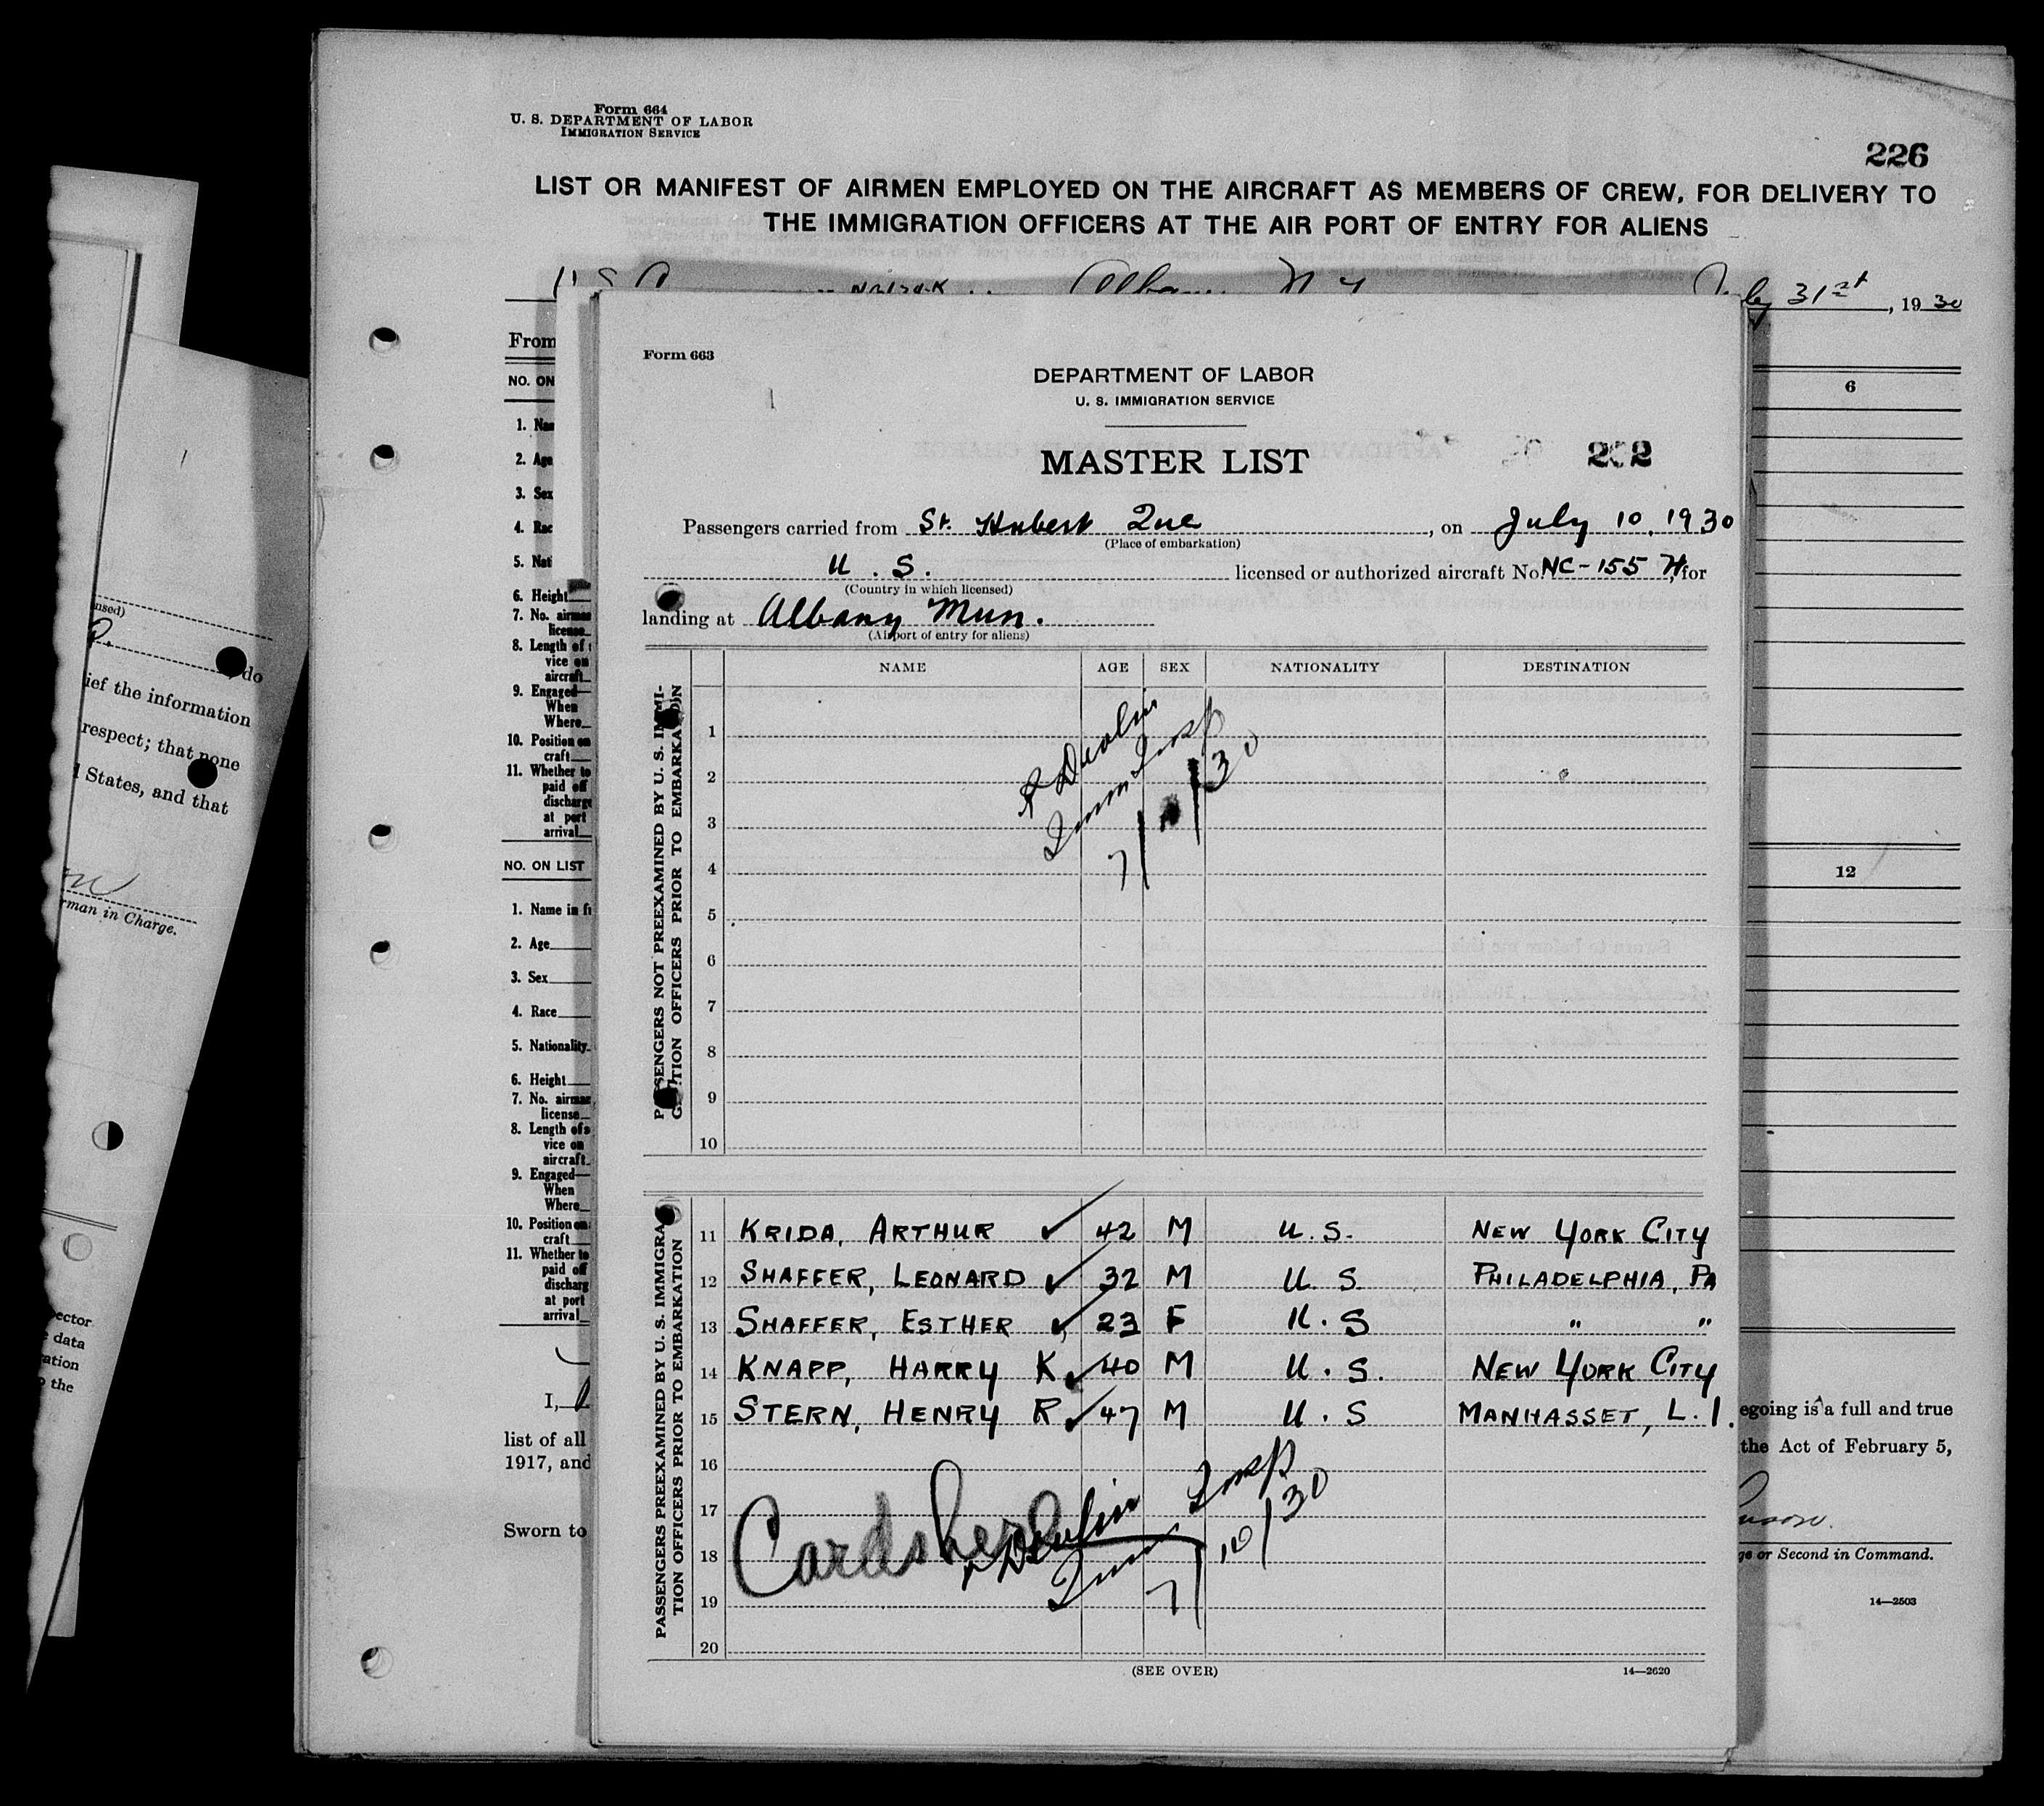 Form 664
U. S. DEPARTMENT OF LABOR
IMMIGRATION SERVICE
226
LIST OR MANIFEST OF AIRMEN EMPLOYED ON THE AIRCRAFT AS MEMBERS OF CREW, FOR DELIVERY TO
THE IMMIGRATION OFFICERS AT THE AIR PORT OF ENTRY FOR ALIENS
July 31st, 1930
From
NO. ON
6
1. Nam
2. Age
3. Sex
4. Rac
5. Nati
6. Height
7. No. airman
license
8. Length of
vice on
aircraft
9. Engaged—
When
Where
10. Position on
craft
11. Whether to
paid off
discharge
at port
arrival
NO. ON LIST
12
1. Name in fu
2. Age
3. Sex
4. Race
5. Nationality
6. Height
7. No. airman
license
8. Length of s
vice on
aircraft
9. Engaged—
When
Where
10. Position on
craft
11. Whether to
paid off
discharg
at port
arrival
I,
egoing is a full and true
list of all
the Act of February 5,
1917, and
Sworn to
ge or Second in Command.
14—2503
Form 663
DEPARTMENT OF LABOR
U. S. IMMIGRATION SERVICE
MASTER LIST
Passengers carried from St. Hubert Que, on July 10, 1930
(Place of embarkation)
U. S. licensed or authorized aircraft No. NC-155 H, for
(Country in which licensed)
landing at Albany Mun.
(Airport of entry for aliens)
NAME AGE SEX NATIONALITY DESTINATION
PASSENGERS NOT PREEXAMINED BY U. S. IMMI-
GRATION OFFICERS PRIOR TO EMBARKATION
1
2
3
4
5
6
7
8
9
10
Devlin
Imm Insp
7/10/30
PASSENGERS PREEXAMINED BY U. S. IMMIGRA
TION OFFICERS PRIOR TO EMBARKATION
11 KRIDA, ARTHUR ✓ 42 M U. S. NEW YORK CITY
12 SHAFFER, LEONARD ✓ 32 M U. S PHILADELPHIA, PA
13 SHAFFER, ESTHER ✓ 23 F U. S " "
14 KNAPP, HARRY K ✓ 40 M U. S. NEW YORK CITY
15 STERN, HENRY R ✓ 47 M U. S MANHASSET, L. I.
16
17
18
19
20
Cards here
Devlin
Imm Insp
7/10/30
(SEE OVER)
14—2620
nsed)
, do
ief the information
respect; that none
States, and that
rman in Charge.
pector
data
ation
the